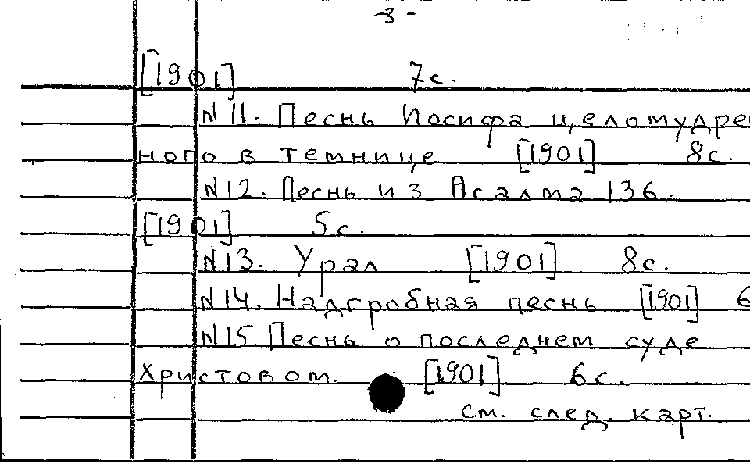 -3-
[1901] 7с.
N11. Песнь Иосифа целомудрен
ного в темнице [1901] 8с.
N12. Песнь из Псалма 136.
[1901] 5с.
N13. Урал [1901] 8с.
N14. Надгробная песнь [1901] 6
N15 Песнь о последнем суде
Христовом. [1901] 6с.
см. след. карт.